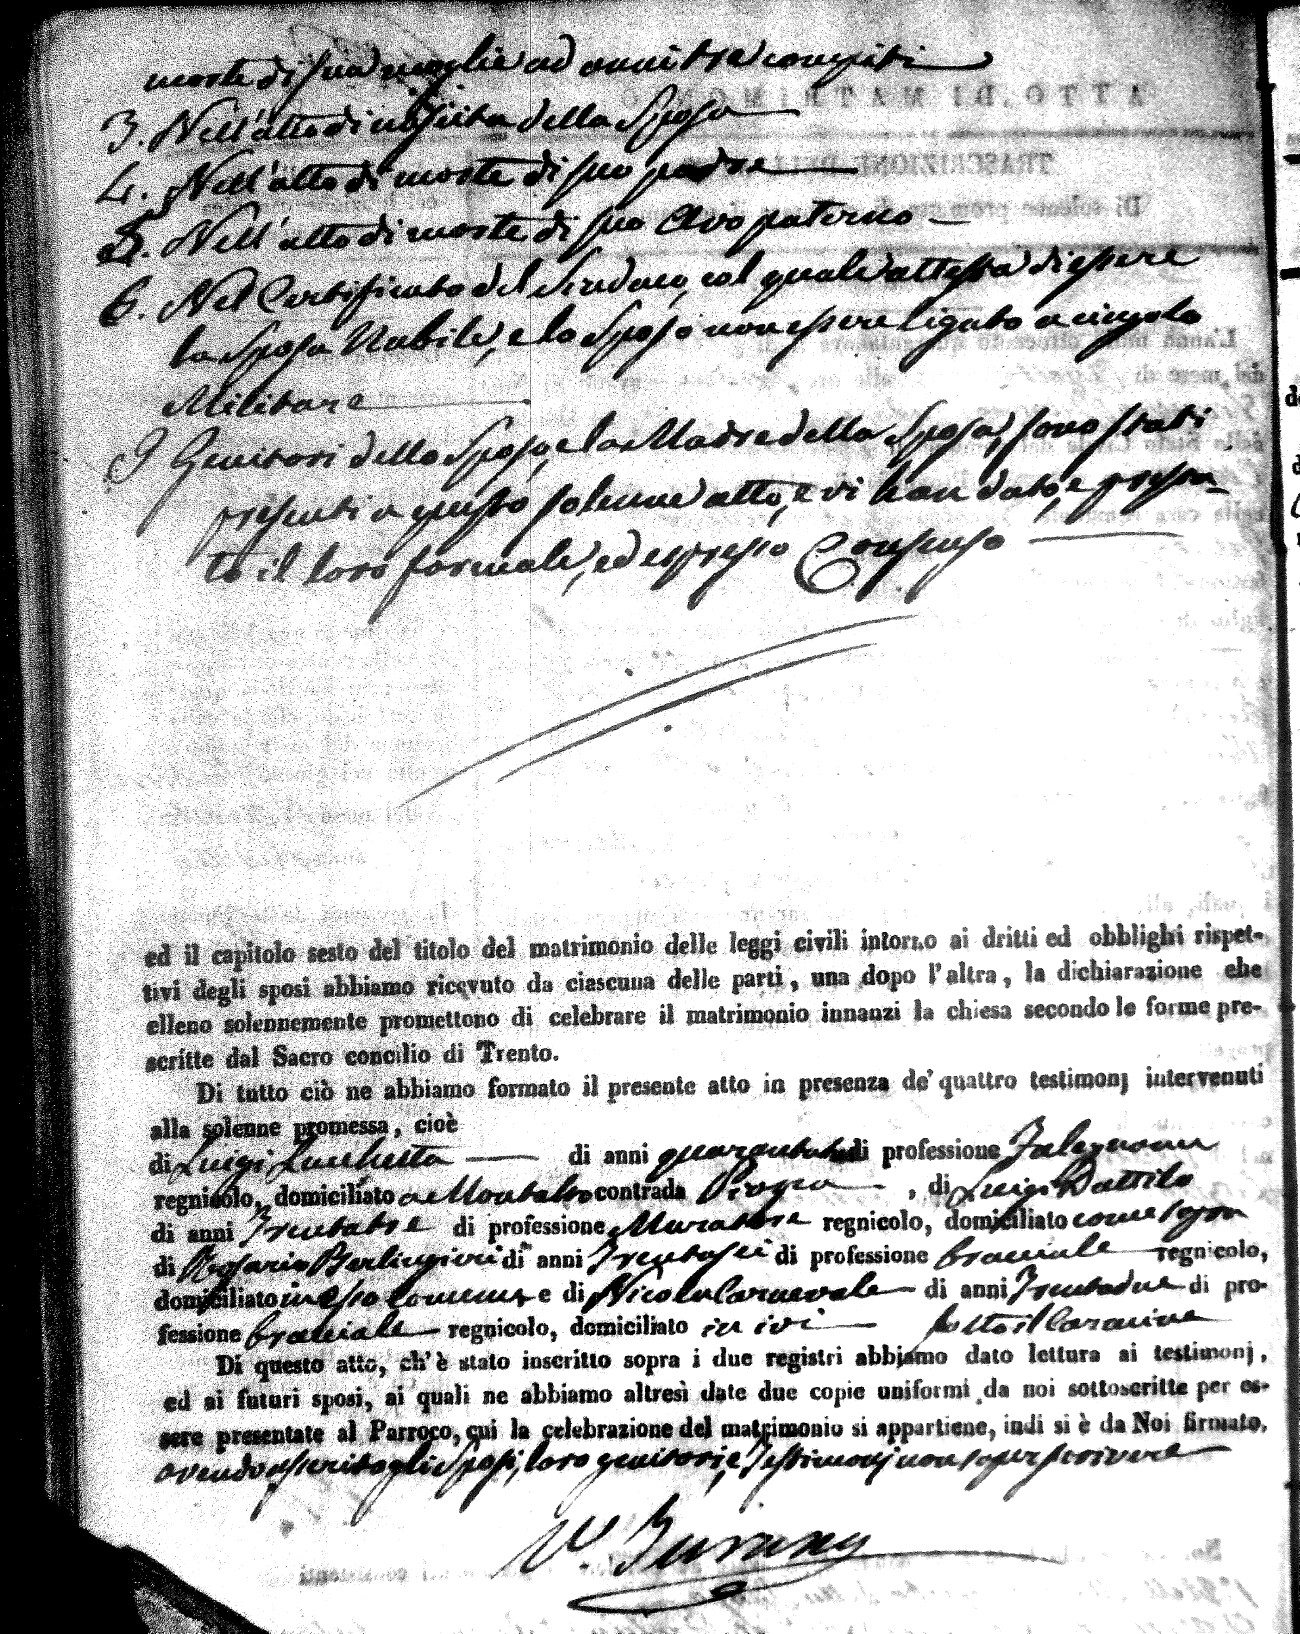 morte di sua moglie ad anni tre compiti
3. Nell'atto di nascita della Sposa
4. Nell'atto di morte di suo padre
5. Nell'atto di morte di suo Avo paterno
6. Nel Certificato del Sindaco, col quale attesta di essere
la Sposa Nubile, e lo Sposo non essere ligato a vincolo
Militare
I Genitori dello Sposo, e la Madre della Sposa, sono stati
presenti a questo solenne atto, e vi han dato, e presta-
to il loro formale, ed espresso Consenso
ed il capitolo sesto del titolo del matrimonio delle leggi civili intorno ai dritti ed obblighi rispet-
tivi degli sposi abbiamo ricevuto da ciascuna delle parti, una dopo l'altra, la dichiarazione che
elleno solennemente promettono di celebrare il matrimonio innanzi la chiesa secondo le forme pre-
scritte dal Sacro concilio di Trento.
Di tutto ciò ne abbiamo formato il presente atto in presenza de' quattro testimonj intervenuti
alla solenne promessa, cioè
di Luigi Lucchetta di anni di professione Falegname
regnicolo, domiciliato a Montalto contrada , di Luigi Dattilo
di anni Trentatre di professione Muratore regnicolo, domiciliato come sopra
di Rosario Berlingieri di anni Trentasei di professione bracciale regnicolo,
domiciliato in esso Comune e di Nicola Carnevale di anni Trentadue di pro-
fessione bracciale regnicolo, domiciliato in ivi sotto il
Di questo atto, ch'è stato inscritto sopra i due registri abbiamo dato lettura ai testimonj,
ed ai futuri sposi, ai quali ne abbiamo altresì date due copie uniformi da noi sottoscritte per es-
sere presentate al Parroco, cui la celebrazione del matrimonio si appartiene, indi si è da Noi firmato,
avendo asserito gli Sposi, loro genitori, e Testimonj non saper scrivere